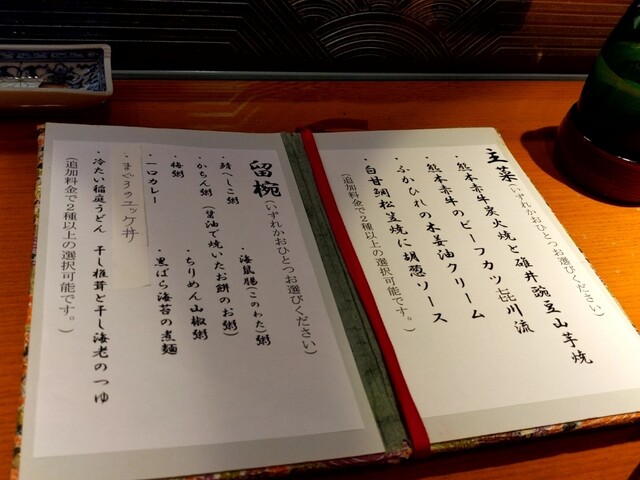 主菜(いずれかおひとつお選びください)
・熊本赤牛炭火焼と碓井豌豆山芋焼
・熊本赤牛のビーフカツ 㐂川流
・ふかひれの木姜油クリーム
・白甘鯛松笠焼に胡葱ソース
(追加料金で2種以上の選択可能です。)
留椀(いずれかおひとつお選びください)
・鯖へしこ粥 ・海鼠腸(このわた)粥
・かちん粥(醤油で焼いたお餅のお粥)
・梅粥 ・ちりめん山椒粥
・一口カレー ・黒ばら海苔の煮麺
・まぐろのユッケ丼
・冷たい稲庭うどん 干し椎茸と干し海老のつゆ
(追加料金で2種以上の選択可能です。)